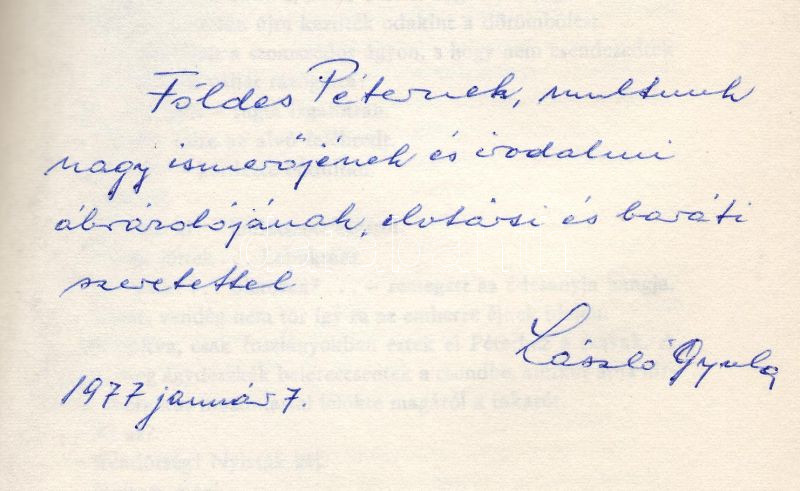 Földes Péternek, multunk
nagy ismerőjének és irodalmi
ábrázolójának, elvtársi és baráti
szeretettel
László Gyula
1977 január 7.